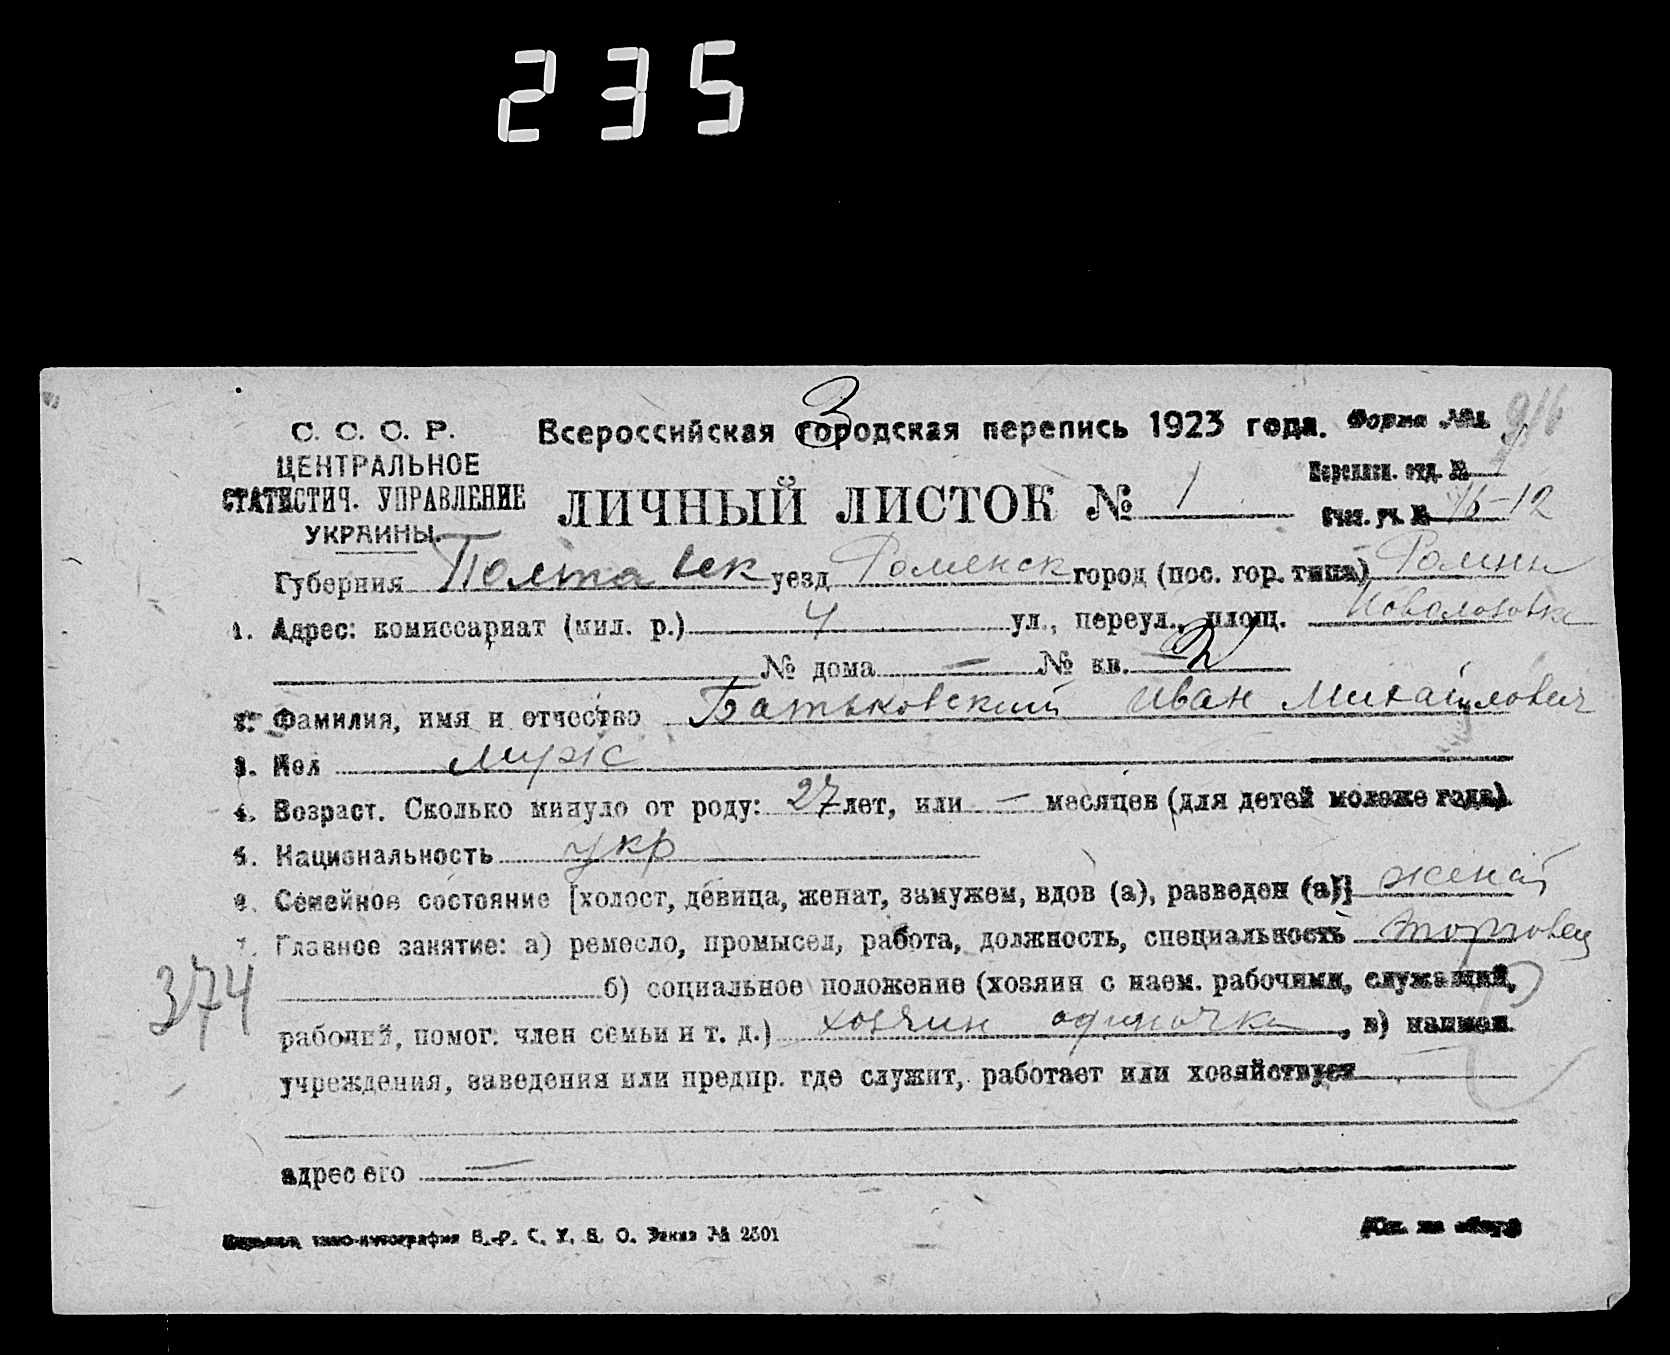 235
3
С. С. С. Р.
ЦЕНТРАЛЬНОЕ
СТАТИСТИЧ. УПРАВЛЕНИЕ
УКРАИНЫ.
Всероссийская городская перепись 1923 года. Форма №1. 916
ЛИЧНЫЙ ЛИСТОК № 1
Переписн. отд. № 1
Счет. уч. № 16-12
Губерния Полтавск уезд Роменск город (пос. гор. типа) Ромны
1. Адрес: комиссариат (мил. р.) 4 ул., переул., площ.
№ дома — № кв. 2
2. Фамилия, имя и отчество Батьковский Иван Михайлович
3. Пол муж
4. Возраст. Сколько минуло от роду: 27 лет, или — месяцев (для детей моложе года).
5. Национальность укр
6. Семейное состояние [холост, девица, женат, замужем, вдов (а), разведен (а)] женат
7. Главное занятие: а) ремесло, промысел, работа, должность, специальность торговец
374
б) социальное положение (хозяин с наем. рабочими, служащий,
рабочий, помог. член семьи и т. д.) хозяин одиночка, в) наимен.
учреждения, заведения или предпр. где служит, работает или хозяйствует
адрес его —
типо-литография В.-Р. С. У. В. О. Заказ № 2301
(См. на обор.)